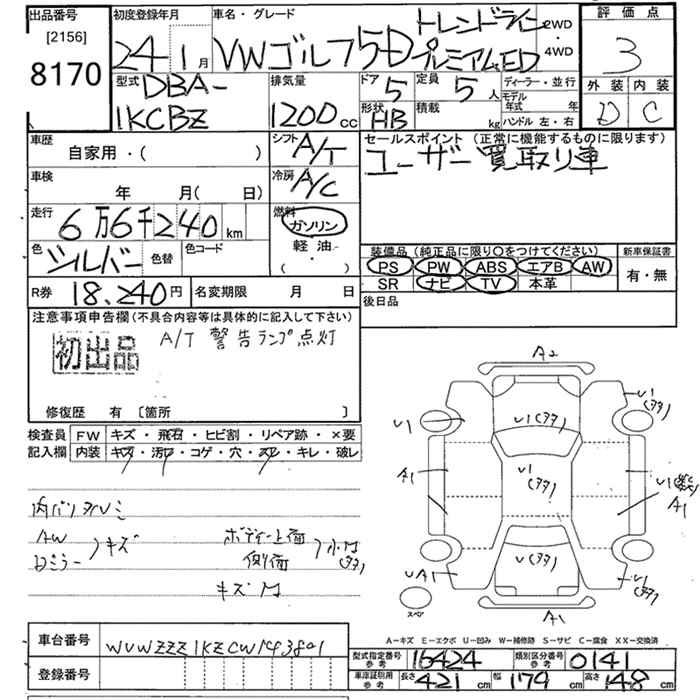 出品番号
[2156]
8170
初度登録年月
24 1月
車名・グレード
VWゴルフ5-D トレンドライン
プレミアムED
2WD
・
4WD
評価点
3
外装 内装
D C
型式
DBA-
1KCBZ
排気量
1200cc
ドア 5
定員 5人
形状 HB
積載 kg
ディーラー・並行
モデル
年式 年
ハンドル 左・右
車歴
自家用・( )
シフト A/T
セールスポイント (正常に機能するものに限ります)
ユーザー買取り車
車検
年 月( 日)
冷房 A/C
走行
6万6千240km
燃料
ガソリン
軽油・
( ・ )
色 シルバー 色替
色コード
装備品 (純正品に限り○をつけてください)
新車保証書
PS PW ABS エアB AW
SR ナビ TV 本革
有・無
R券 18,240円
名変期限 月 日
後日品
注意事項申告欄 (不具合内容等は具体的に記入して下さい)
初出品
A/T 警告ランプ点灯
修復歴 有 [箇所 ]
検査員
記入欄
FW キズ・飛石・ヒビ割・リペア跡・×要
内装 キズ・汚れ・コゲ・穴・スレ・キレ・破レ
A2
U1
U1(タタ)
U1(タタ)
A1
U1
(タタ)
A1
U(タタ)
UA1
U1
(タタ)
スペア
A1
AW
Dミラー
キズ
ボディー上面
側面
キズ
A-キズ E-エクボ U-凹み W-補修跡 S-サビ C-腐食 XX-交換済
車台番号
WVWZZZ1KZCW143801
登録番号
型式指定番号
参考
16424
類別区分番号
参考
0141
車庫証明用
参考
長さ 421cm
幅 179cm
高さ 148cm